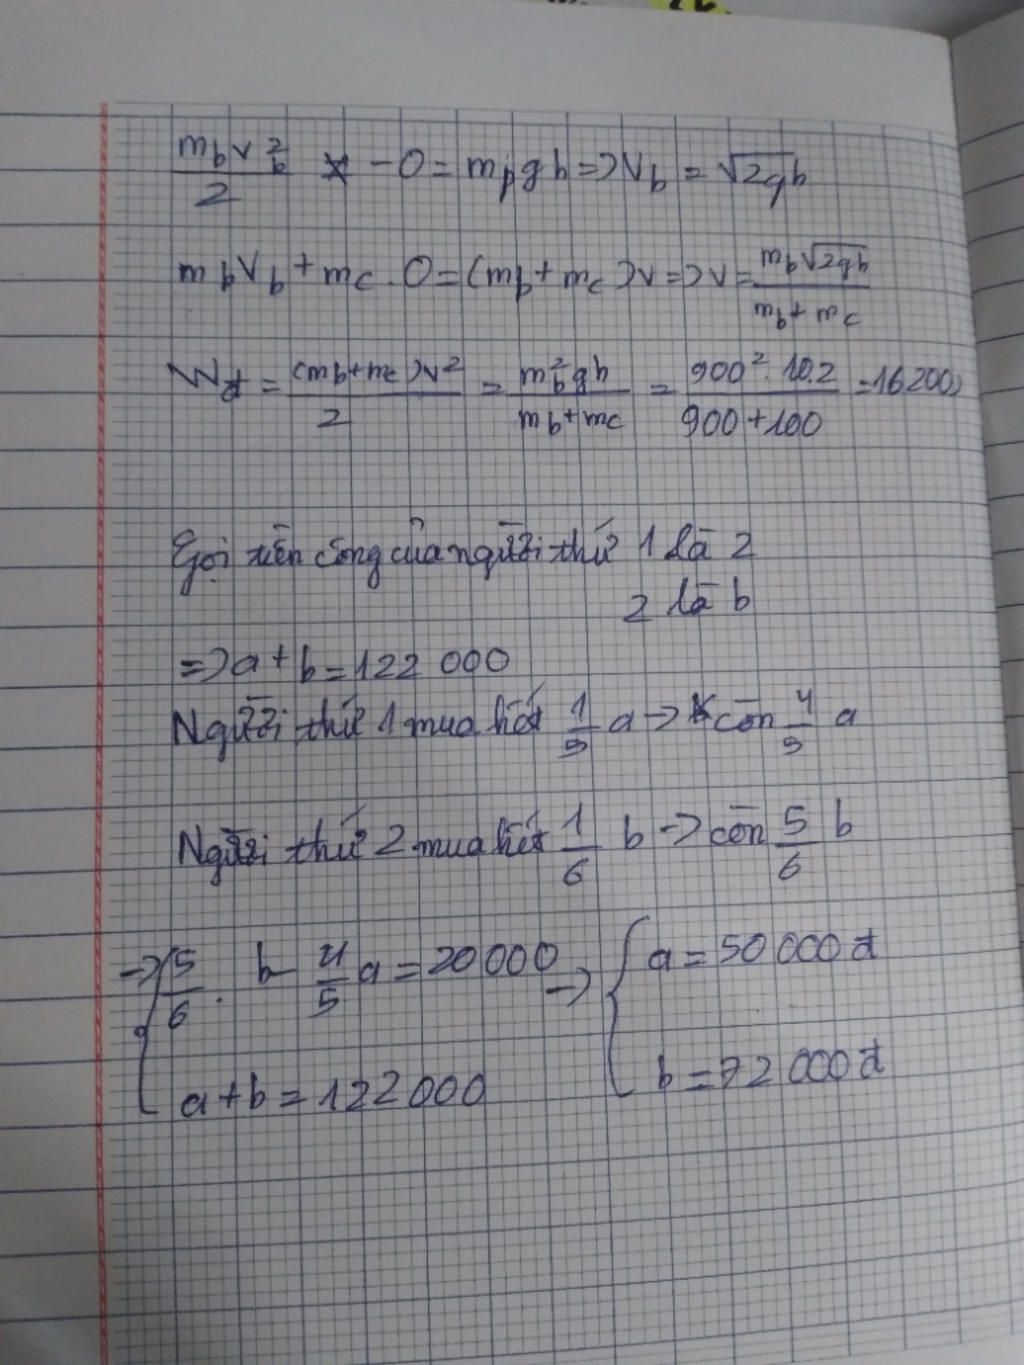 m_b v_b^2 / 2 - 0 = m_b g h => v_b = √2gh
m_b v_b + m_c . 0 = (m_b + m_c) v => v = m_b √2gh / m_b + m_c
W_đ = (m_b + m_c) v^2 / 2 = m_b^2 g h / m_b + m_c = 900^2 . 10.2 / 900 + 100 = 16200J
Gọi tiền công của người thứ 1 là 2
2 là b
=> a + b = 122 000
Người thứ 1 mua hết 1/5 a -> còn 4/5 a
Người thứ 2 mua hết 1/6 b -> còn 5/6 b
-> { 5/6 . b - 4/5 a = 20 000 -> { a = 50 000 đ
a + b = 122 000 b = 72 000 đ